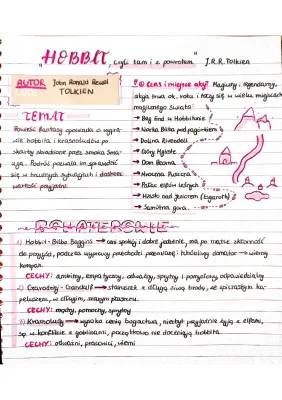 „HOBBIT, czyli tam i z powrotem" J.R.R. Tolkien
AUTOR John Ronald Reuel
TOLKIEN
TEMAT
Powieść fantasy opowiada o wypra-
wie hobbita i krasnoludów po
skarby strzeżone przez smoka Smau-
ga. Podróż pozwala im sprawdzić
się w trudnych sytuacjach i dostrzec
wartość przyjaźni.
Czas i miejsce akcji Magiczny, legendarny,
akcja trwa ok. roku i toczy się w wielu miejscach
magicznego świata:
→ Bag End w Hobbitonie
→ Norka Bilba pod pagórkiem
→ Dolina Rivendell
→ Góry Mgliste
→ Dom Beorna
→ Mroczna Puszcza
→ Pałac elfów leśnych
→ Miasto nad jeziorem (Esgaroth)
→ Samotna góra
BOHATEROWIE
1) Hobbit - Bilbo Baggins → ceni spokój i dobre jedzenie, ma po matce skłonność
do przygód, podczas wyprawy przechodzi przemianę: tchórzliwy domator → wierny
kompan.
CECHY: ambitny, empatyczny, odważny, sprytny i pomysłowy, odpowiedzialny
2) Czarodziej - Gandalf → staruszek z długą siwą brodą, ze spiczastym ka-
peluszem, w długim, szarym płaszczu.
CECHY: mądry, pomocny, sprytny
3) Krasnoludy → wysoko cenią bogactwa, niezbyt przyjaźnie żyją z elfami,
są w konflikcie z goblinami, początkowo nie doceniają hobbita.
CECHY: odważni, pracowici, wierni